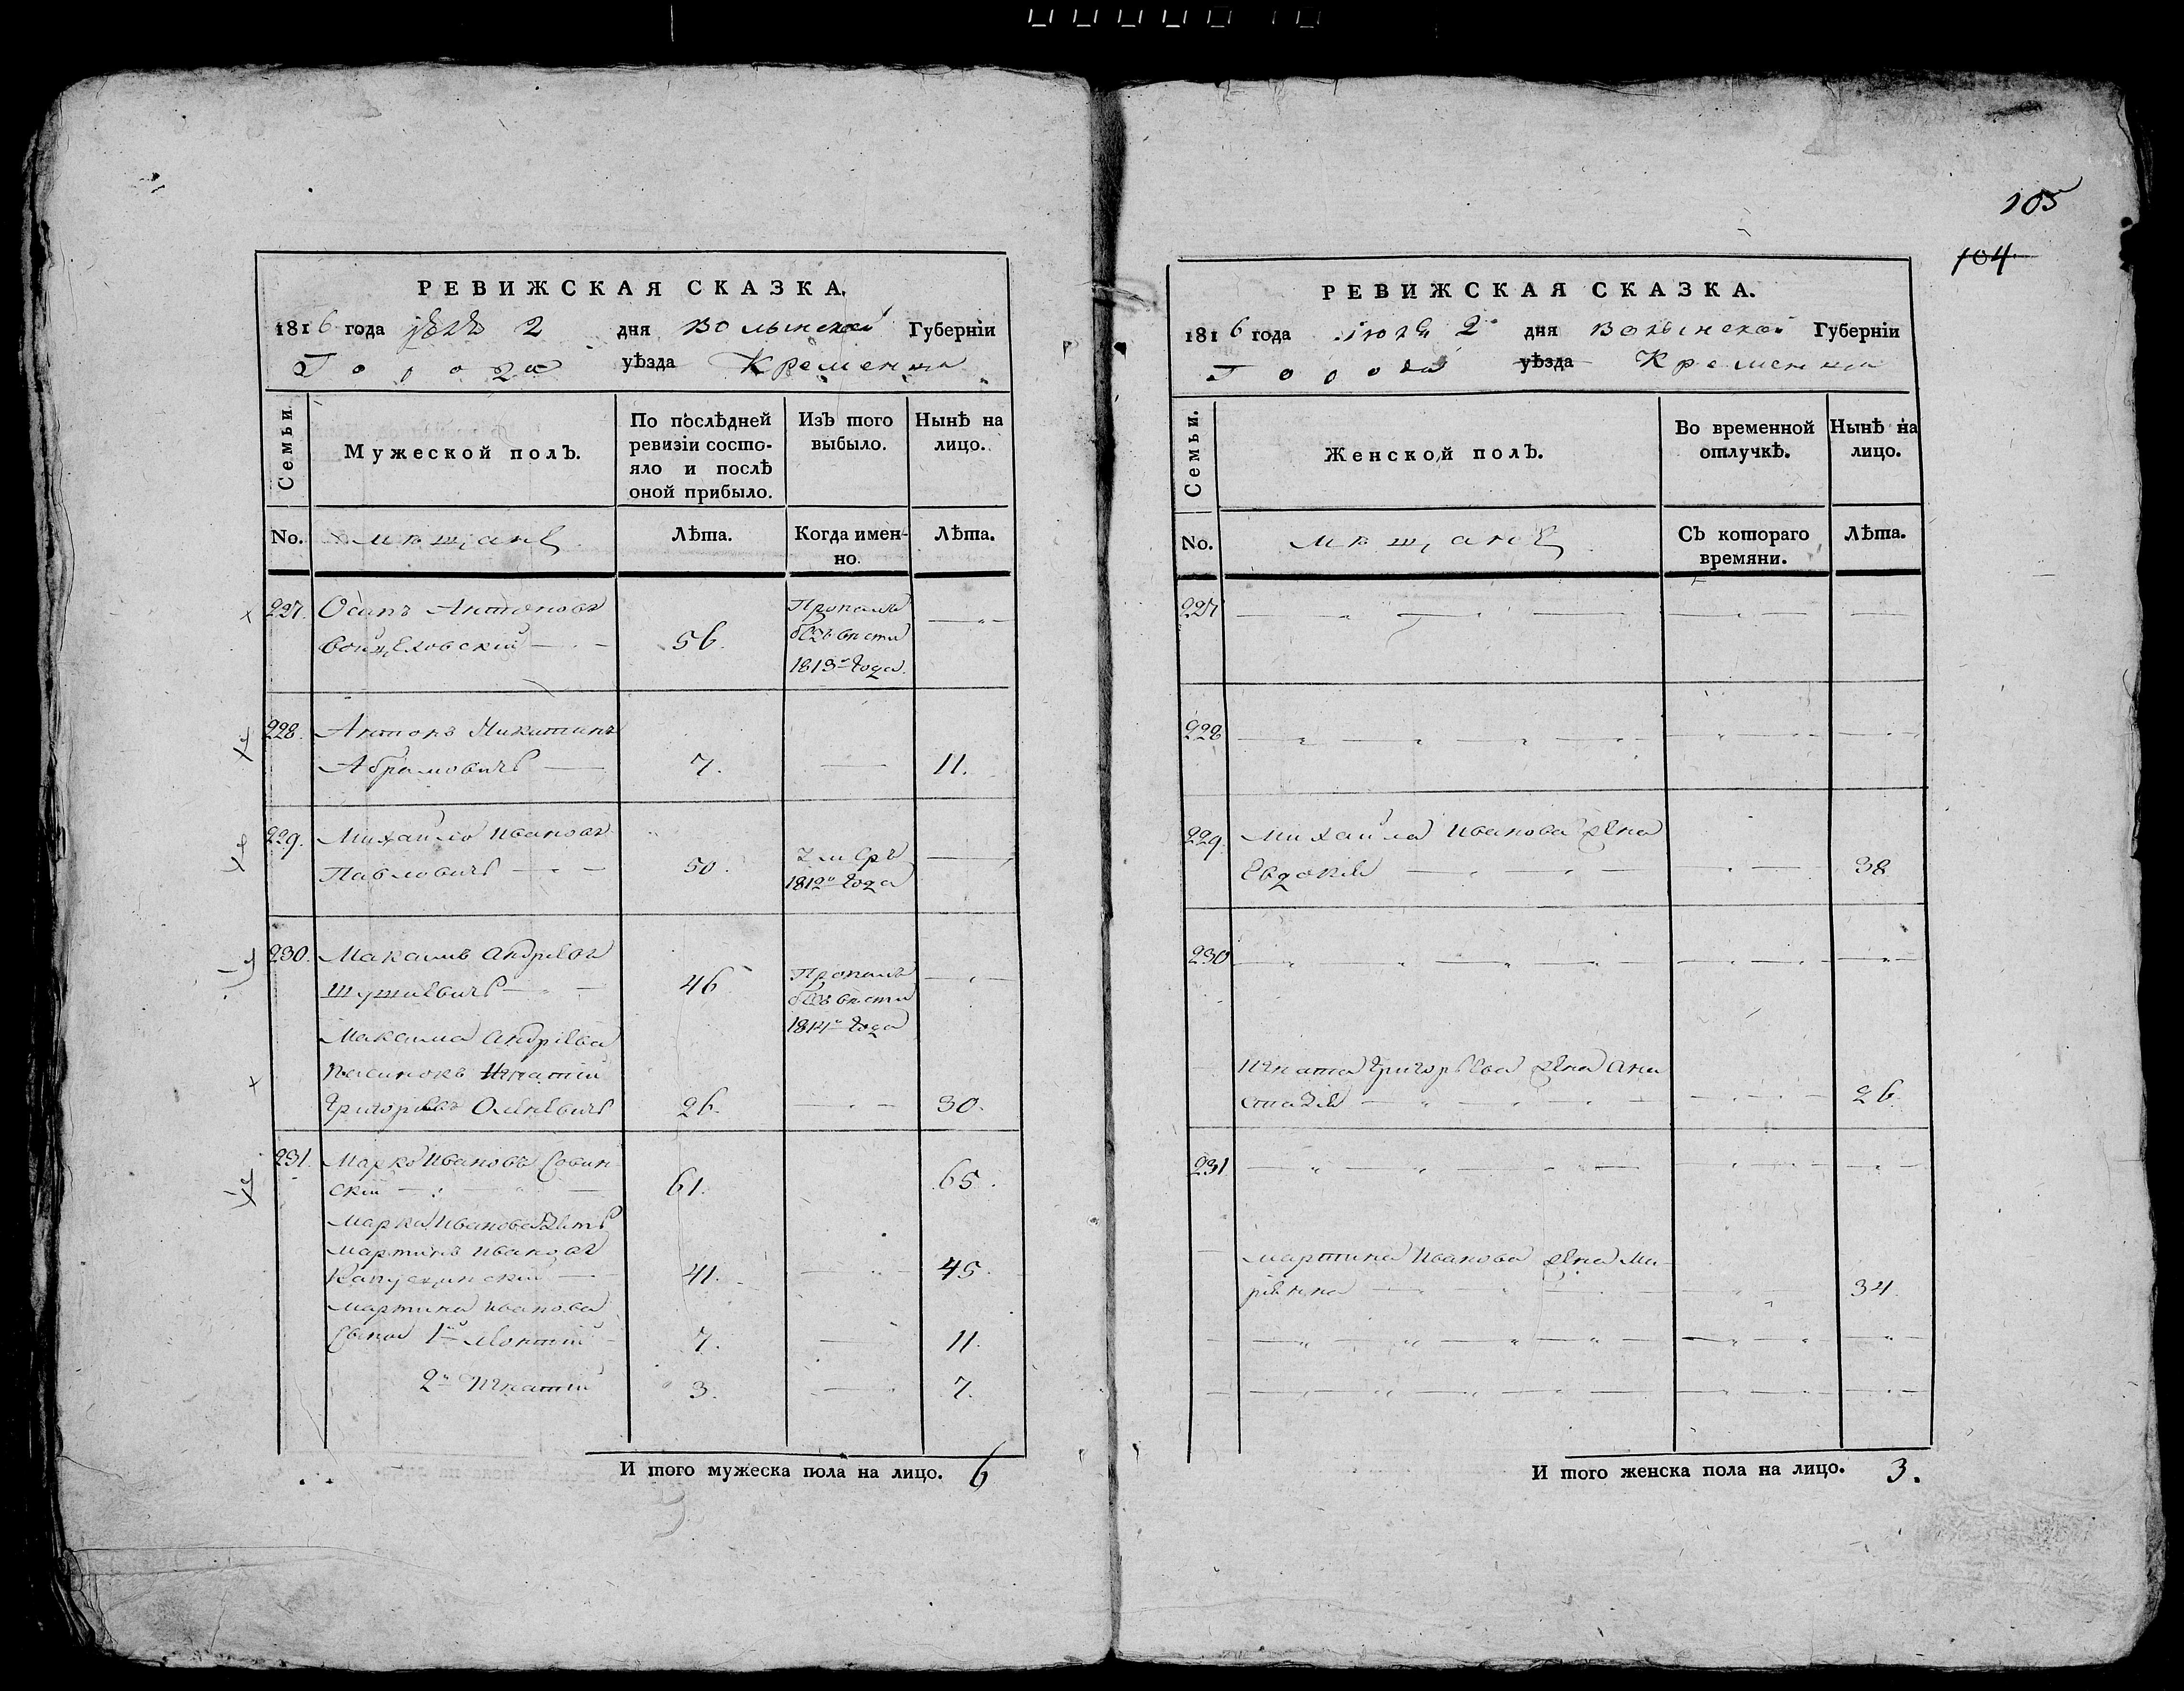 РЕВИЖСКАЯ СКАЗКА.
1816 года 2 дня Волынской Губерніи
Города уѣзда Кременца
Семьи.
Мужеской полъ.
По послѣдней ревизіи состо-
яло и послѣ
оной прибыло.
Изъ того
выбыло.
Нынѣ на
лицо.
No.
мѣщане
Лѣта.
Когда имен-
но.
Лѣта.
227. Осипъ Антоновъ
Войцеховскій 56.
Пропалъ
безъ вести
1813го года.
228. Антонъ Никитинъ
Абрамовичъ 7. 11.
229. Михайло Ивановъ
Павловичъ 50.
Умеръ
1812го года
230. Максимъ Андреевъ
46
Пропалъ
безъ вести
1814го года
Максима Андреева
пасинокъ Игнатій
Григорьевъ 26. 30.
231. Марко Ивановъ Совин-
скій 61. 65.
Марка Иванова зять
Мартинъ Ивановъ
41. 45.
Мартина Иванова
Сыновя 1й Леонтій 7. 11.
2й Игнатій 3. 7.
И того мужеска пола на лицо. 6
105
104
РЕВИЖСКАЯ СКАЗКА.
1816 года июля 2 дня Волынской Губерніи
Города уѣзда Кременца
Семьи.
Женской полъ.
Во временной
отлучкѣ.
Нынѣ на
лицо.
No.
мѣщане
Съ котораго
времяни.
Лѣта.
227
228
229 Михайла Иванова жена
Евдокія 38
230
Игната Григорьева жена Ана
стазія 26
231
Мартина Иванова жена Ма-
ріянна 34.
И того женска пола на лицо. 3.